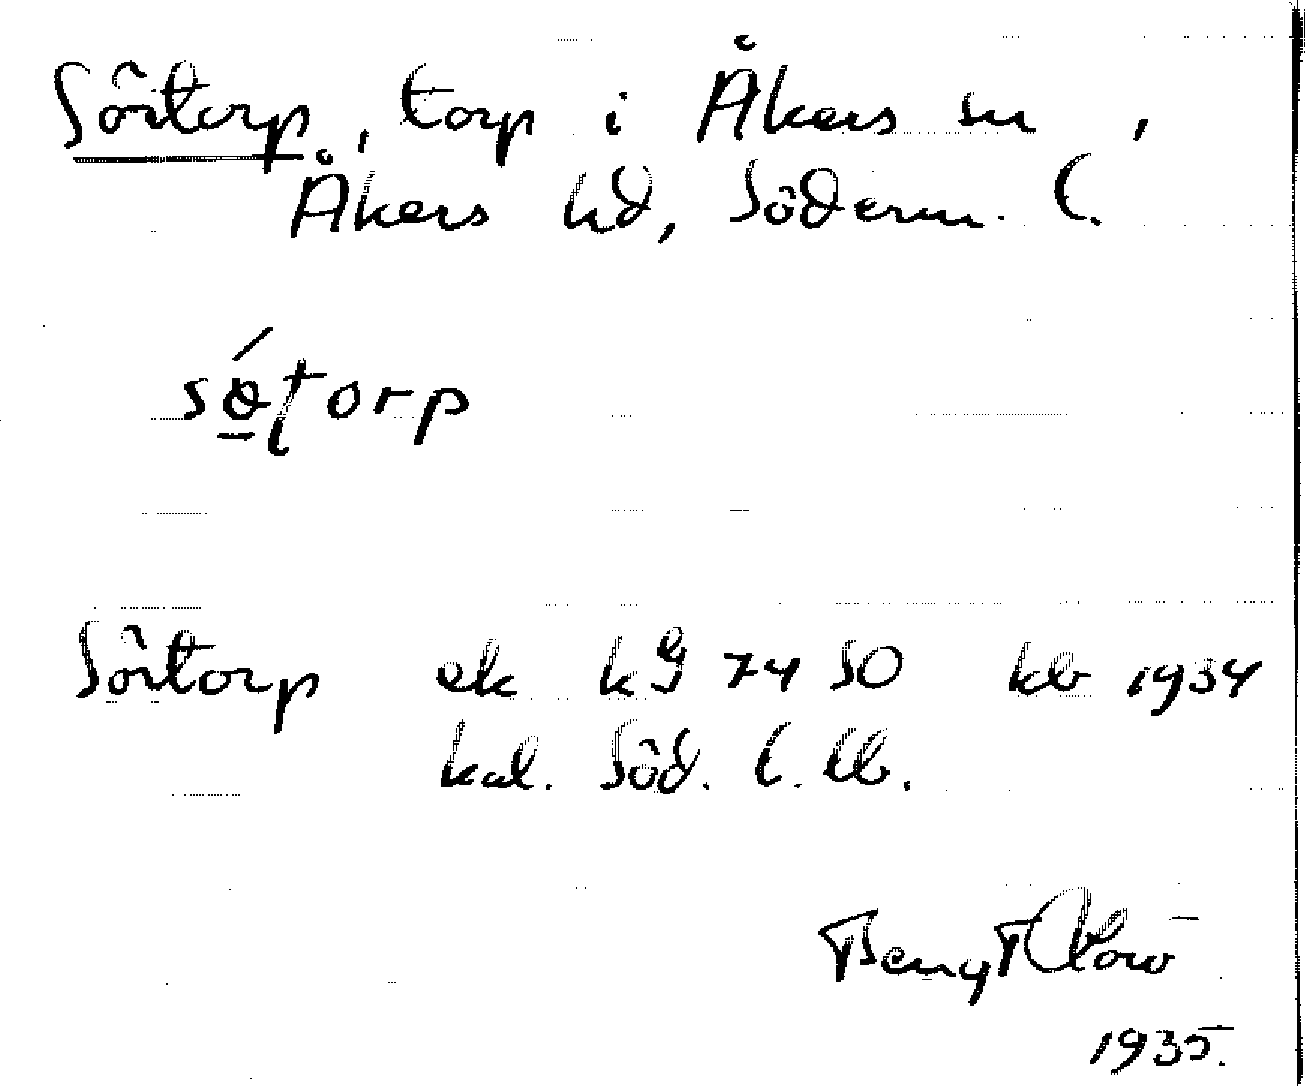 Sörtorp, torp i Åkers sn,
Åkers hd, Söderm. l.
sǿ̱torp
Sörtorp ek kg 74 SO kb 1934
kal. Söd. l. lb.
Bengt
1935.